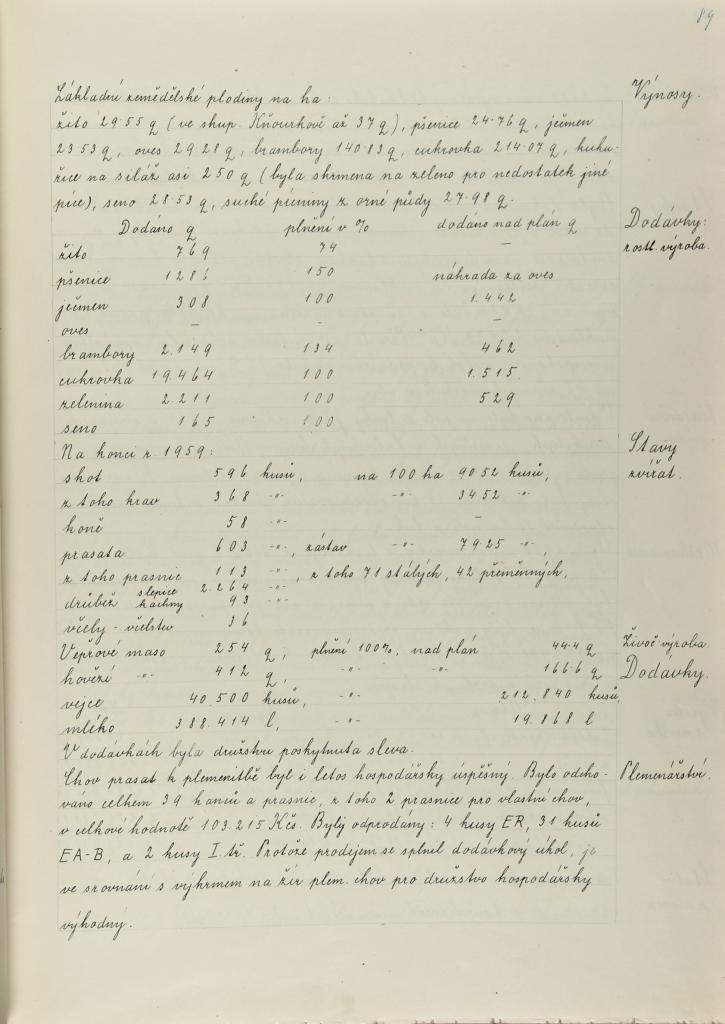 89
Základní zemědělské plodiny na ha: Výnosy.
žito 29·55 q (ve skup. Kňourkově až 37 q), pšenice 24·76 q, ječmen
23·53 q, oves 29·28 q, brambory 140·83 q, cukrovka 214·07 q, kuku-
řice na siláž asi 250 q (byla skrmena na zeleno pro nedostatek jiné
píce), seno 28·53 q, suché pícniny z orné půdy 27·98 q.
Dodáno q plnění v % dodáno nad plán q Dodávky:
žito 769 74 — rostl. výroba.
pšenice 1286 150 náhrada za oves
ječmen 308 100 1.442
oves — - —
brambory 2.149 134 462
cukrovka 19.464 100 1.515
zelenina 2.211 100 529
seno 165 100
Na konci r. 1959: Stavy
skot 596 kusů, na 100 ha 90·52 kusů, zvířat.
z toho krav 368 -"- -"- 34·52 -"-
koně 58 -"- —
prasata 603 -"-, zástav -"- 79·25 -"-,
z toho prasnic 113 -"-, z toho 71 stálých, 42 přeměnných,
drůbež slepice 2.264 -"-
kachny 93 -"-
včely - včelstev 36
Vepřové maso 254 q, plnění 100%, nad plán 44·4 q Živoč. výroba.
hovězí -"- 412 q, -"- -"- 166·6 q Dodávky.
vejce 40.500 kusů, -"- 212.840 kusů,
mléko 388.414 l, -"- 19.868 l
V dodávkách byla družstvu poskytnuta sleva.
Chov prasat k plemenitbě byl i letos hospodářsky úspěšný. Bylo odcho- Plemenářství.
váno celkem 39 kanců a prasnic, z toho 2 prasnice pro vlastní chov,
v celkové hodnotě 103.215 Kčs. Byly odprodány: 4 kusy ER, 31 kusů
EA-B, a 2 kusy I. tř. Protože prodejem se splnil dodávkový úkol, je
ve srovnání s výkrmem na žír plem. chov pro družstvo hospodářsky
výhodný.